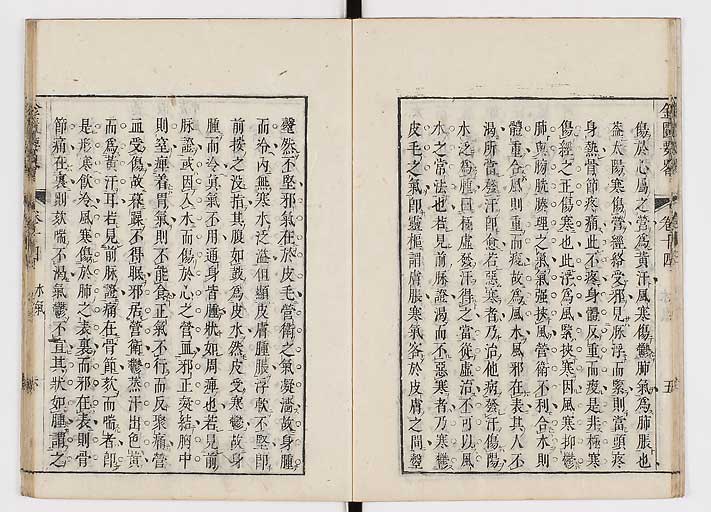 金匱要畧
卷十四
水病
五
傷於心屬之營爲黃汗風寒傷鬱肺氣爲肺脹也
蓋太陽寒傷營經絡受邪見脉浮而緊則當頭疼
身熱骨節疼痛此不疼身體反重而痠是非極寒
傷經之正傷寒也此浮爲風緊挾寒因風寒抑鬱
肺與胸腕腠理之氣氣強挾風管衛不利合水則
體重合風則重而痠故爲風水風邪在表其人不
渴所當發汗卽愈若惡寒者乃治他病發汗傷陽
水泛爲腫曰極虛發汗得之當從虛治不可以風
水之常法也若見前脉證渴而不惡寒者乃寒鬱
皮毛之氣卽靈樞謂膚脹寒氣客於皮膚之間
然不堅邪氣在於皮毛營衛之氣凝濇故身腫
而冷內無寒水泛溢但顯皮膚腫脹浮軟不堅卽
前按之沒指其腹如鼓爲皮水然皮受寒鬱故身
腫而冷眞氣不用通身皆腫狀如周痺也若見前
脉證或因入水而傷於心之營血邪正凝結胸中
則窒痺着胃氣則不能食正氣不行而反聚痛營
血受傷故躁不得眠邪居營衛鬱蒸汗出色黃
而爲黃汗耳若見前脉證痛在骨節欬而喘者卽
是形寒飲冷風寒傷於肺之表裏而邪在表則骨
節痛在裏則欬喘不渴氣鬱不宣其狀如腫謂之